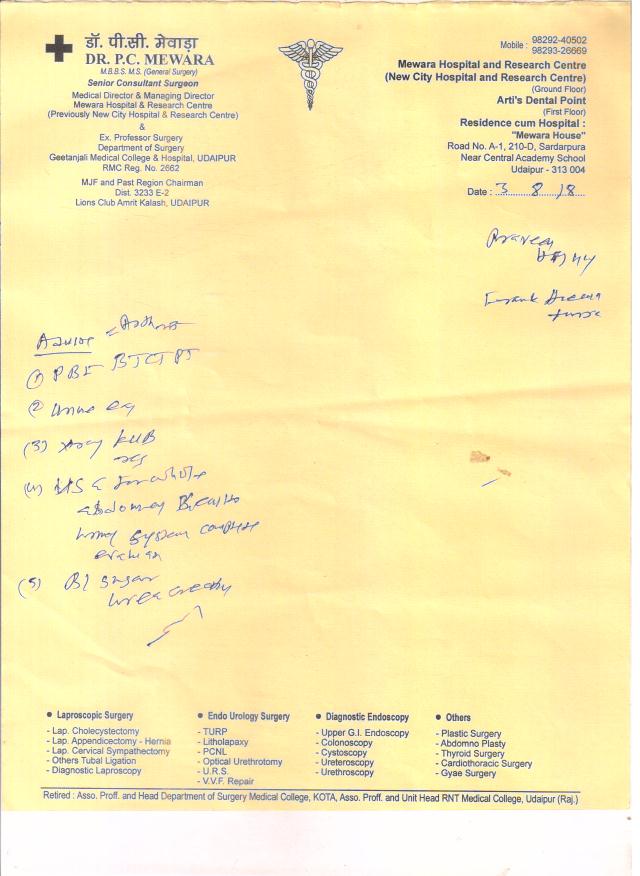 डॉ. पी.सी. मेवाड़ा
DR. P.C. MEWARA
M.B.B.S. M.S. (General Surgery)
Senior Consultant Surgeon
Medical Director & Managing Director
Mewara Hospital & Research Centre
(Previously New City Hospital & Research Centre)
&
Ex. Professor Surgery
Department of Surgery
Geetanjali Medical College & Hospital, UDAIPUR
RMC Reg. No. 2662
MJF and Past Region Chairman
Dist. 3233 E-2
Lions Club Amrit Kalash, UDAIPUR
Mobile : 98292-40502
98293-26669
Mewara Hospital and Research Centre
(New City Hospital and Research Centre)
(Ground Floor)
Arti's Dental Point
(First Floor)
Residence cum Hospital :
"Mewara House"
Road No. A-1, 210-D, Sardarpura
Near Central Academy School
Udaipur - 313 004
Date : 3 8 18
Advise
(1) PBF BTCTPT
(2) Urine
(3) Xray KUB
(4) USG for whole
abdomen
system
(5) Bl sugar
urea
Laproscopic Surgery
- Lap. Cholecystectomy
- Lap. Appendicectomy - Hernia
- Lap. Cervical Sympathectomy
- Others Tubal Ligation
- Diagnostic Laproscopy
Endo Urology Surgery
- TURP
- Litholapaxy
- PCNL
- Optical Urethrotomy
- U.R.S.
- V.V.F. Repair
Diagnostic Endoscopy
- Upper G.I. Endoscopy
- Colonoscopy
- Cystoscopy
- Ureteroscopy
- Urethroscopy
Others
- Plastic Surgery
- Abdomno Plasty
- Thyroid Surgery
- Cardiothoracic Surgery
- Gyae Surgery
Retired : Asso. Proff. and Head Department of Surgery Medical College, KOTA, Asso. Proff. and Unit Head RNT Medical College, Udaipur (Raj.)